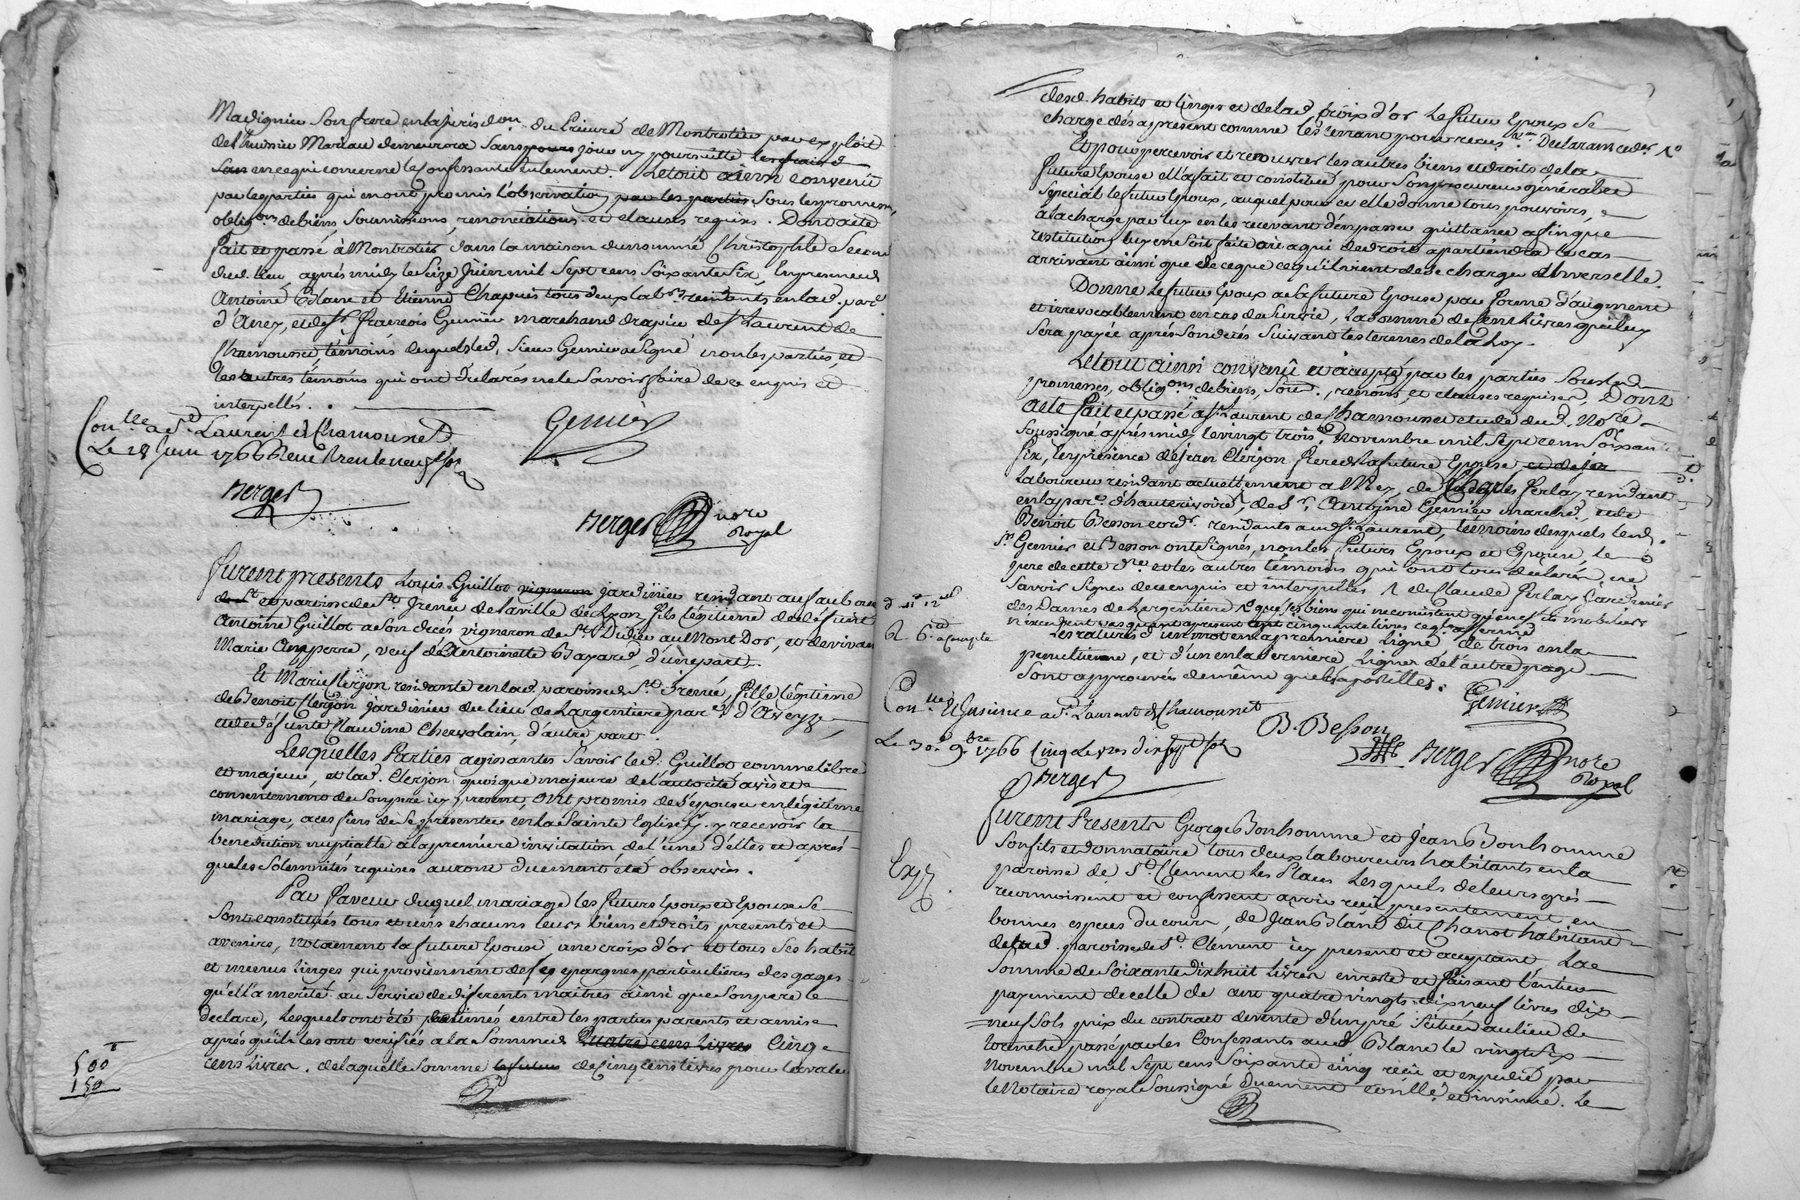 Madignier son frere en la jurisd.on du Prieuré de Montrotier par exploit
de l'huissier Mareau demeurera sans jour ny poursuitte
en ce qui concerne le confessante seulement. Le tout ainsi convenû
par les parties qui en ont promis l'observation, par les parties sous les promesses,
oblig.ons de biens, soumissions, renonciations, et clauses requises. Dont acte
fait et passé à Montrotier dans la maison du nommé Christophle
dud. lieu après midy le seize Juin mil sept cens soixante six, En presence d'
Antoine Blanc et Etienne Chapuis tous deux lab.rs residents en lad. par.e
d'Avez, et de s.r François Gemier marchand drapier de S.t Laurent de
Chamousset, témoins lequel led. sieur Gemier a signé non les parties, et
les autres témoins qui ont déclarés ne le savoir faire de ce enquis et
interpellés.
Con.lle a S.t Laurent de Chamousset
Le 28 Juin 1766 Reçu trente neuf sols
Gemier
Berger
Berger nore
Royal
furent presents Louis Guillot vigneron jardinier residant au fauboure
de S.t et paroisse de S.t Irenée de la ville de Lyon, fils légitime de deffunt
Antoine Guillot a son decés vigneron de S.t Didier au Mont Dor, et de vivante
Marie Amperre, veuf de Antoinette Bayard, d'une part.
Et Marie Clerjon residante en lad. paroisse de S.t Irenée, fille légitime
de Benoit Clerjon jardinier du lieu de Largentiere par.e d'Aveyze,
et de deffunte Claudine Chervolain, d'autre part.
Lesquelles Parties agissantes savoir led. Guillot comme libre
et majeur, et lad. Clerjon quoique majeure de l'autorité avis et
consentement de son pere icy present, ont promis de s'épouser en légitime
mariage, a ces fins de se presenter en la Sainte Eglise p.r y recevoir la
benediction nuptialle a la première invitation de l'une d'elles et après
que les solemnités requises auront duement été observées.
En Faveur duquel mariage les futurs Epoux et Epouse se
sont constitués tous et uns chacuns leurs biens et droits presents et
avenirs, notament la future Epouse, une croix d'or et tous ses habits
et menus linges qui proviennent de ses epargnes particulières des gages
qu'ell'a merité au service de differents maitres ainsi que son pere le
declare, lesquels ont été estimés entre les parties parents et amis
après qu'ils les ont verifiés a la somme de Quatre cens livres Cinq
cens livres. de laquelle somme de cinq cens livres pour la vale
500 #
150
desd. habits et linges et de lad. croix d'or le futur Epoux se
charge dés apresent comme les tenant pour recus
Et pour percevoir et recouvrer les autres biens et droits de la
future Epouse ell'a fait et constitué pour son procureur général et
special le futur Epoux, auquel pour ce elle donne tous pouvoirs,
a la charge par luy en les recevant d'en passer quittance afin que
restitution luy en soit faite ou a qui de droit apartiendra le cas
arrivant ainsi que de ce que ce qu'il vient de se charger d'hors elle.
Donne le futur Epoux a la future Epouse par forme d'augment
et irrevocablement en cas de survie, la somme de cent Livres qui luy
sera payée après son decés suivant les termes de la Loy.
Le tout ainsi convenû et accepté par les parties sous les
promesses, oblig.ons de biens, soum., renons, et clauses requises. Dont
acte fait et passé a S.t Laurent de Chamousset etude dud. no.re
soussigné après midy le vingt trois Novembre mil sept cens soixante
six, En presence de Jean Clerjon frere de la future Epouse
laboureur residant actuellement a Mey, de Claude Perlaz residant
en la par.e d'hauterivoire, de S.r Antoine Gemier march.d et de
Benoit Besson cord.r residants aud. S.t Laurent, témoins desquels lesd.
s.rs Gemier et Besson ont signés, non les futurs Epoux et Epouse, le
pere de cette d.re et les autres témoins qui ont tous declarés ne
savoir signer de ce enquis et interpellés
des Dames de Largentiere
Les ratures d'un mot en la premiere ligne, de trois en la
penultieme, et d'un en la derniere ligne de l'autre page
sont approuvées de même que les apostilles.
Gemier
B. Besson
Con.lle et Insinué a S.t Laurent de Chamousset
Le 30.e 9.bre 1766 Cinq livres dix sept sols
Berger
Berger nore
Royal
furent Presents George Bonhomme et Jean Bonhomme
son fils et donnataire tous deux laboureurs habitants en la
paroisse de S.t Clement les Places Lesquels de leurs grés
reconnoissent et confessent avoir reçu presentement en
bonnes especes du cours, de Jean Blanc dit Chanot habitant
de lad. paroisse de S.t Clement icy present et acceptant La
somme de soixante dix huit Livres en reste et faisant l'entier
payement de celle de cent quatre vingts dix neuf livres dix
neuf sols prix du contract de vente d'un pré scitué au lieu de
passé par les Confessants aud. Blanc le vingt six
Novembre mil sept cens soixante cinq reçu et expedié par
le Notaire royal soussigné duement con.lle et insinué. Le